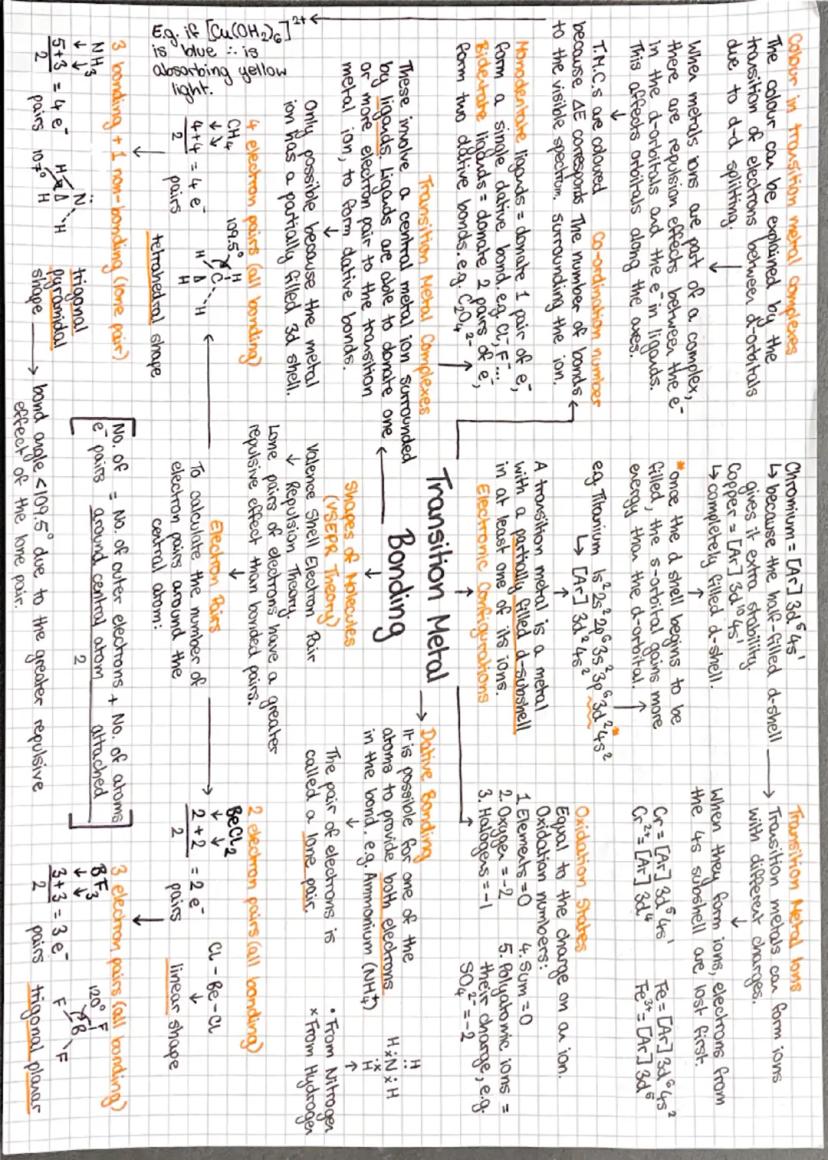 Transition Metal
Bonding
Colour in transition metal complexes
The colour can be explained by the
transition of electrons between d-orbitals
due to d-d splitting.
When metals ions are part of a complex,
there are repulsion effects between the e-
in the d-orbitals and the e- in ligands.
This affects orbitals along the axes.
T.M.C.s are coloured
because ΔE corresponds
to the visible spectrum.
E.g. if [Cu(OH₂)₆]²⁺
is blue ∴ is
absorbing yellow
light.
Co-ordination number
The number of bonds
surrounding the ion.
Monodentate ligands = donate 1 pair of e⁻,
form a single dative bond. e.g. Cl⁻, F⁻...
Bidentate ligands = donate 2 pairs of e⁻,
form two dative bonds. e.g. C₂O₄²⁻
Transition Metal Complexes
These involve a central metal ion surrounded
by ligands. Ligands are able to donate one
or more electron pair to the transition
metal ion, to form dative bonds.
Only possible because the metal
ion has a partially filled 3d shell.
Chromium = [Ar] 3d⁵4s¹
↳ because the half-filled d-shell
gives it extra stability.
Copper = [Ar] 3d¹⁰4s¹
↳ completely filled d-shell.
*once the d shell begins to be
filled, the s-orbital gains more
energy than the d-orbital.
e.g. Titanium 1s²2s²2p⁶3s²3p⁶3d²4s²*
↳ [Ar] 3d²4s²
A transition metal is a metal
with a partially filled d-subshell
in at least one of its ions.
Electronic Configurations
Transition Metal Ions
Transition metals can form ions
with different charges.
When they form ions, electrons from
the 4s subshell are lost first.
Cr = [Ar] 3d⁵4s¹
Cr²⁺ = [Ar] 3d⁴
Fe = [Ar] 3d⁶4s²
Fe³⁺ = [Ar] 3d⁵
Oxidation States
Equal to the charge on an ion.
Oxidation numbers:
1. Elements = 0
2. Oxygen = -2
3. Halogens = -1
4. Sum = 0
5. Polyatomic ions =
their charge, e.g.
SO₄²⁻ = -2
Dative Bonding
It is possible for one of the
atoms to provide both electrons
in the bond. e.g. Ammonium (NH₄⁺)
The pair of electrons is
called a lone pair.
H
H N H
H
• From Nitrogen
x From Hydrogen
Shapes of Molecules
(VSEPR Theory)
Valence Shell Electron Pair
Repulsion Theory
Lone pairs of electrons have a greater
repulsive effect than bonded pairs.
Electron Pairs
To calculate the number of
electron pairs around the
central atom:
No. of e⁻ pairs = No. of outer electrons around central atom + No. of atoms attached
2
2 electron pairs (all bonding)
BeCl₂
2 + 2 = 2 e⁻
2 pairs
Cl - Be - Cl
linear shape
3 electron pairs (all bonding)
BF₃
3+3 = 3 e⁻
2 pairs
120°
F
B
F
F
trigonal planar
4 electron pairs (all bonding)
CH₄
4+4 = 4 e⁻
2 pairs
109.5°
H
C
H
H
H
tetrahedral shape
3 bonding + 1 non-bonding (lone pair)
NH₃
5+3 = 4 e⁻
2 pairs
107°
N
H
H
H
trigonal
pyramidal
shape
bond angle <109.5° due to the greater repulsive
effect of the lone pair.